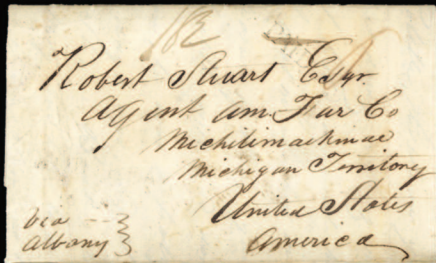 Robert Stuart Esqr.
Agent Am Fur Co
Michilimackinac
Michigan Territory
United States
America
Via
Albany